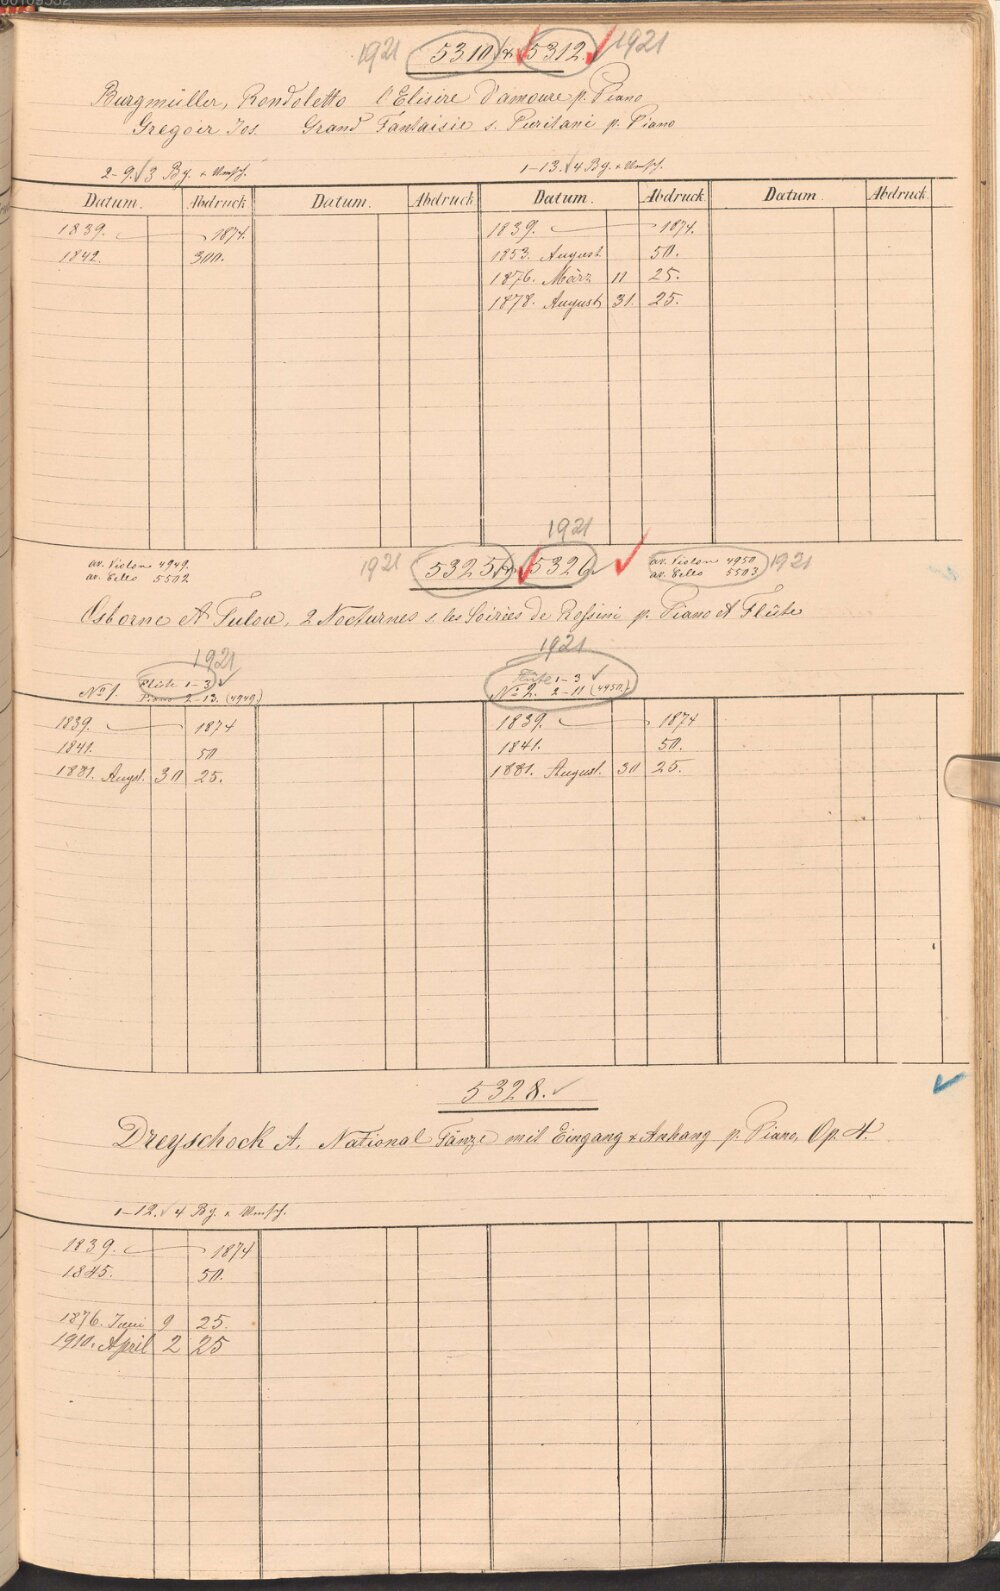 1921 5310 & 5312. 1921
Burgmüller, Rondoletto l'Elisire d'amoure p. Piano
Gregoir Jos. Grand Fantaisie s. Puritani p. Piano
2-9. 3 Bg. & Umsch.
1-13. 4 Bg. & Umsch.
Datum. Abdruck Datum. Abdruck Datum. Abdruck. Datum. Abdruck.
1839. 1874.
1842. 300.
1839. 1874.
1853. August 50.
1876. März 11 25.
1878. August 31. 25.
1921
av. Violon 4949.
av. Cello 5502
1921 5325 & 5326
av. Violon 4950
av. Cello 5503
1921
Osborne et Tulou, 2 Nocturnes s. les Soirées de Rossini p. Piano et Flûte
1921
1921
No 1. Flûte 1-3
Piano 2-13. (4949)
Flûte 1-3
No 2. 2-11 (4950.)
1839. 1874
1841. 50
1881. Augst. 30 25.
1839. 1874
1841. 50.
1881. August. 30 25.
5328.
Dreyschock A. National Tänze mit Eingang & Anhang p. Piano, Op. 4.
1-12. 4 Bg. & Umsch.
1839. 1874
1845. 50.
1876. Juni 9 25.
1910. April 2 25